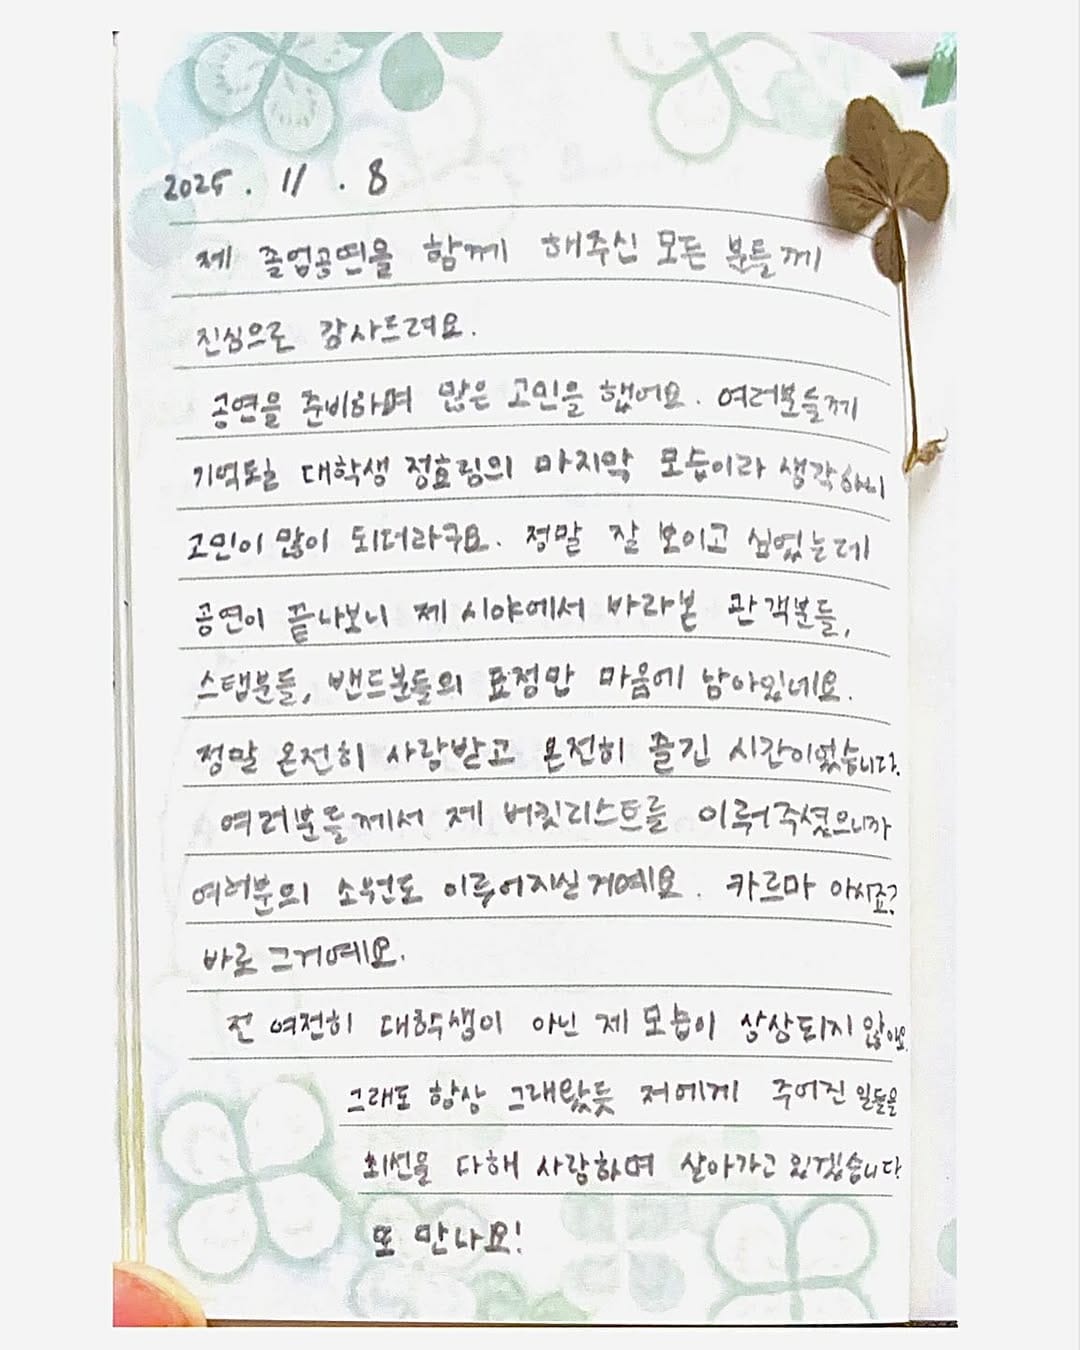 2025. 11. 8
제 졸업공연을 함께 해주신 모든 분들께
진심으로 감사드려요.
공연을 준비하며 많은 고민을 했어요. 여러분들께
기억될 대학생 정효림의 마지막 모습이라 생각하니
고민이 많이 되더라구요. 정말 잘 보이고 싶었는데
공연이 끝나보니 제 시야에서 바라본 관객분들,
스탭분들, 밴드분들의 표정만 마음에 남아있네요.
정말 온전히 사랑받고 온전히 즐긴 시간이었습니다.
여러분들께서 제 버킷리스트를 이뤄주셨으니까
여러분의 소원도 이루어지실거예요. 카르마 아시죠?
바로 그거예요.
전 여전히 대학생이 아닌 제 모습이 상상되지 않아요.
그래도 항상 그래왔듯 저에게 주어진 일들을
최선을 다해 사랑하며 살아가고 있겠습니다.
또 만나요!